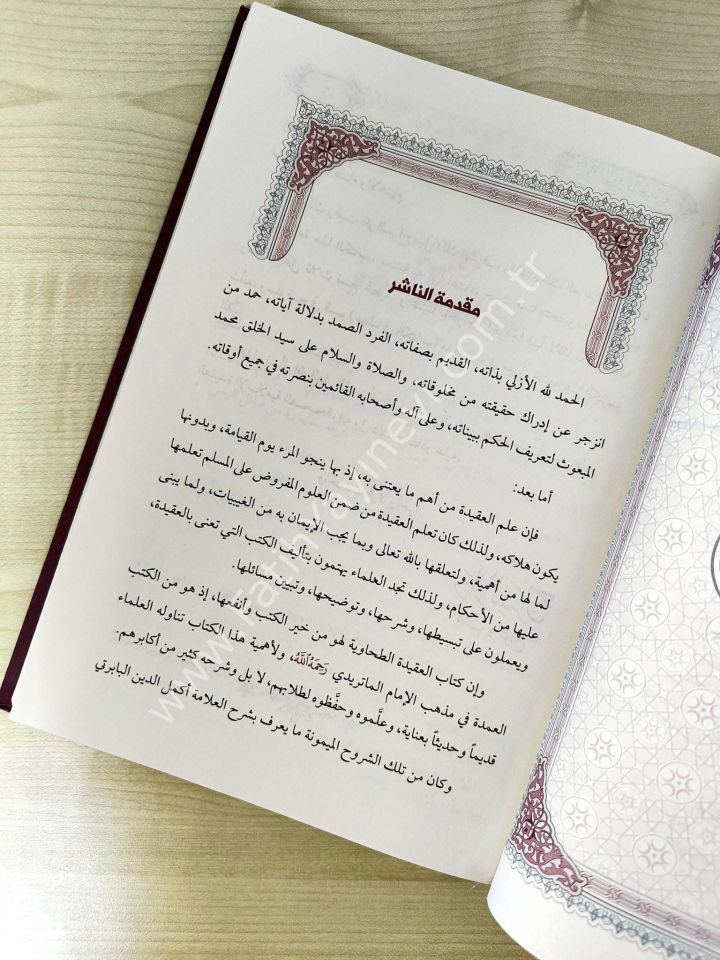 مقدمة الناشر
الحمد لله الأزلي بذاته، القديم بصفاته، الفرد الصمد بدلالة آياته، حمد من
انزجر عن إدراك حقيقته من مخلوقاته، والصلاة والسلام على سيد الخلق محمد
المبعوث لتعريف الحكم ببيناته، وعلى آله وأصحابه القائمين بنصرته في جميع أوقاته.
أما بعد:
فإن علم العقيدة من أهم ما يعتنى به، إذ بها ينجو المرء يوم القيامة، وبدونها
يكون هلاكه، ولذلك كان تعلم العقيدة من ضمن العلوم المفروض على المسلم تعلمها
لما لها من أهمية، ولتعلقها بالله تعالى وبما يجب الإيمان به من الغيبيات، ولما يبنى
عليها من الأحكام، ولذلك تجد العلماء يهتمون بتأليف الكتب التي تعنى بالعقيدة،
ويعملون على تبسيطها، وشرحها، وتوضيحها، وتبيين مسائلها.
وإن كتاب العقيدة الطحاوية لهو من خير الكتب وأنفعها، إذ هو من الكتب
العمدة في مذهب الإمام الماتريدي رَحِمَهُ اللَّهُ، ولأهمية هذا الكتاب تناوله العلماء
قديماً وحديثاً بعناية، وعلَّموه وحفَّظوه لطلابهم، لا بل وشرحه كثير من أكابرهم.
وكان من تلك الشروح الميمونة ما يعرف بشرح العلامة أكمل الدين البابرتي
www.Fatihyayinevi.com.tr